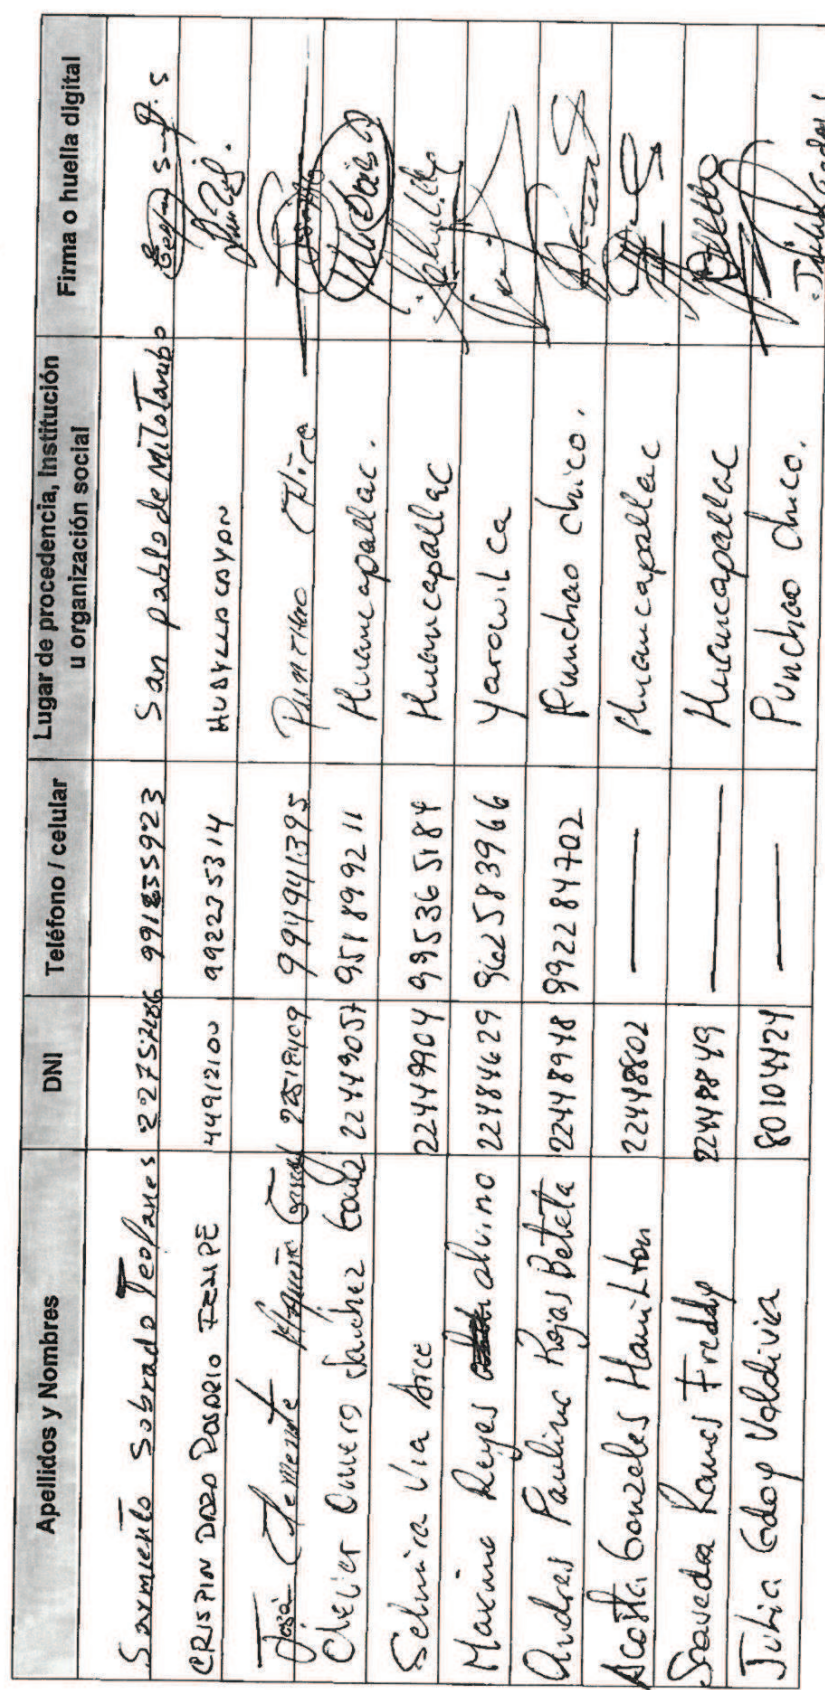 Apellidos y Nombres DNI Teléfono / celular Lugar de procedencia, Institución u organización social Firma o huella digital
Sarmiento Sobrado Teofanes 22757486 991855923 San pablo de Mitotambo
CRISPIN DAZA ROSARIO FELIPE 44912100 992225314 HUAYLLACAYAN
José Clemente 22518409 994941395 Punchao Chico
Clelier Omero Sanchez 22449057 951899211 Huancapallac.
Selmira Via Arce 22449904 995365184 Huancapallac
Maximo Reyes alvino 22484629 962583966 Yarowilca
Andres Paulino Rojas Beteta 22448948 992284702 Punchao Chico.
Acosta Gonzales Hamilton 22448802 — Huancapallac
Saavedra Ramos Freddy 22448849 — Huancapallac
Julia Godoy Valdivia 80104424 — Punchao Chico.